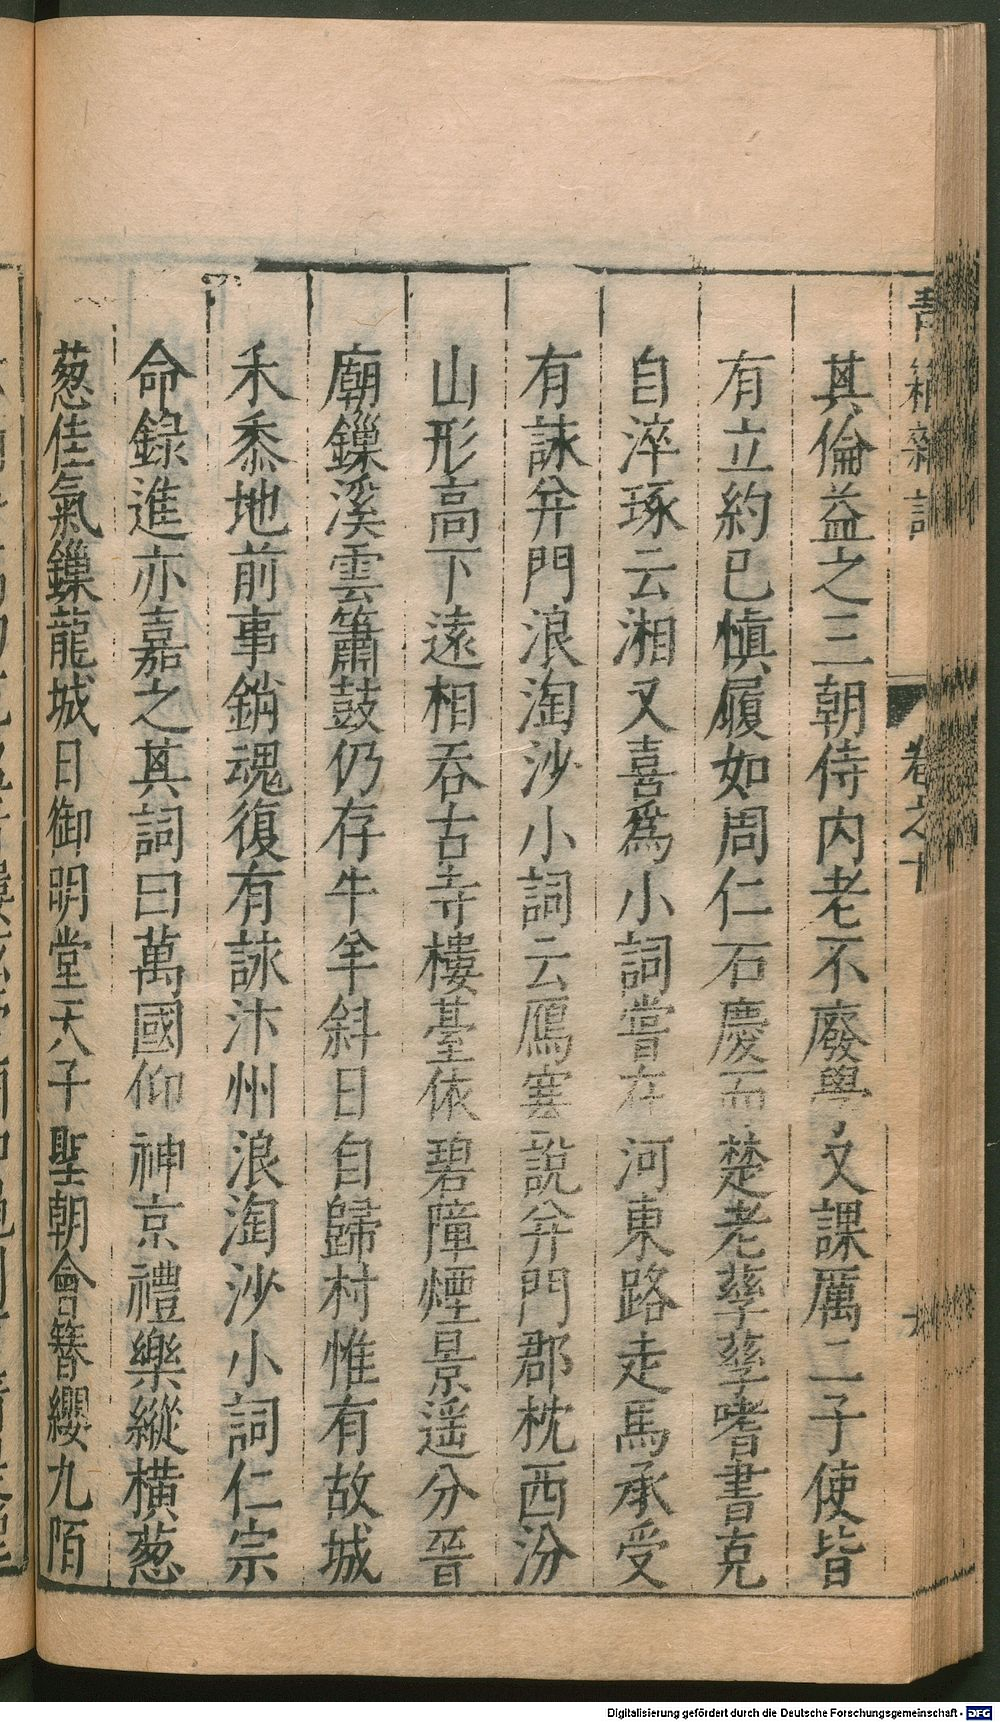 青箱雜記 卷之十
其倫益之三朝侍內老不廢學又課厲二子使皆
有立約己慎履如周仁石慶而楚老孳孳嗜書克
自淬琢云湘又喜爲小詞嘗在河東路走馬承受
有詠并門浪淘沙小詞云鴈塞說并門郡枕西汾
山形高下遠相吞古寺樓臺依碧障煙景遥分晉
廟鏁溪雲簫鼓仍存牛羊斜日自歸村惟有故城
禾黍地前事銷魂復有詠汴州浪淘沙小詞仁宗
命錄進亦嘉之其詞曰萬國仰神京禮樂縱横葱
葱佳氣鏁龍城日御明堂天子聖朝會簪纓九陌
Digitalisierung gefördert durch die Deutsche Forschungsgemeinschaft - DFG